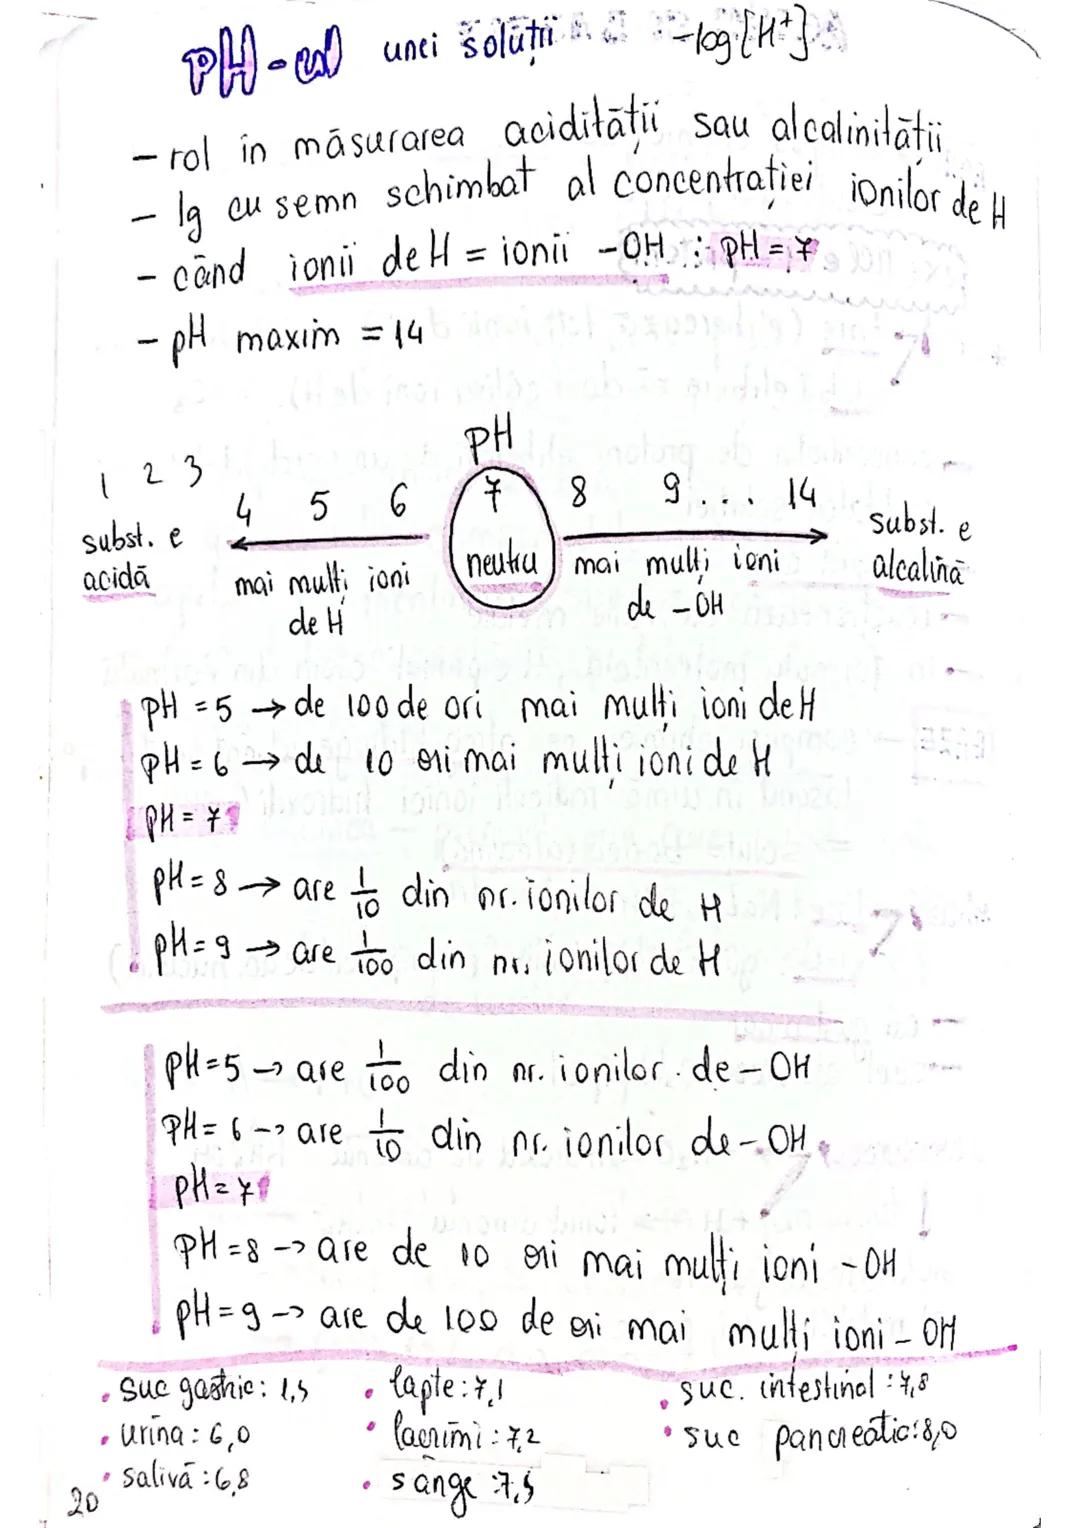 pH-ul unei soluții -log[H⁺]
- rol în măsurarea acidității sau alcalinității
- lg cu semn schimbat al concentrației ionilor de H
- când ionii de H = ionii -OH : pH = 7
- pH maxim = 14
pH
1 2 3 4 5 6 7 8 9... 14
subst. e acidă
mai mulți ioni de H
neutru
mai mulți ioni de -OH
subst. e alcalină
pH = 5 → de 100 de ori mai mulți ioni de H
pH = 6 → de 10 ori mai mulți ioni de H
pH = 7
pH = 8 → are 1/10 din nr. ionilor de H
pH = 9 → are 1/100 din nr. ionilor de H
pH = 5 → are 1/100 din nr. ionilor de -OH
pH = 6 → are 1/10 din nr. ionilor de -OH
pH = 7
pH = 8 → are de 10 ori mai mulți ioni -OH
pH = 9 → are de 100 de ori mai mulți ioni -OH
• suc gastric: 1,5 • lapte: 7,1 • suc. intestinal: 7,8
• urina: 6,0 • lacrimi: 7,2 • suc pancreatic: 8,0
• salivă: 6,8 • sânge: 7,5
20